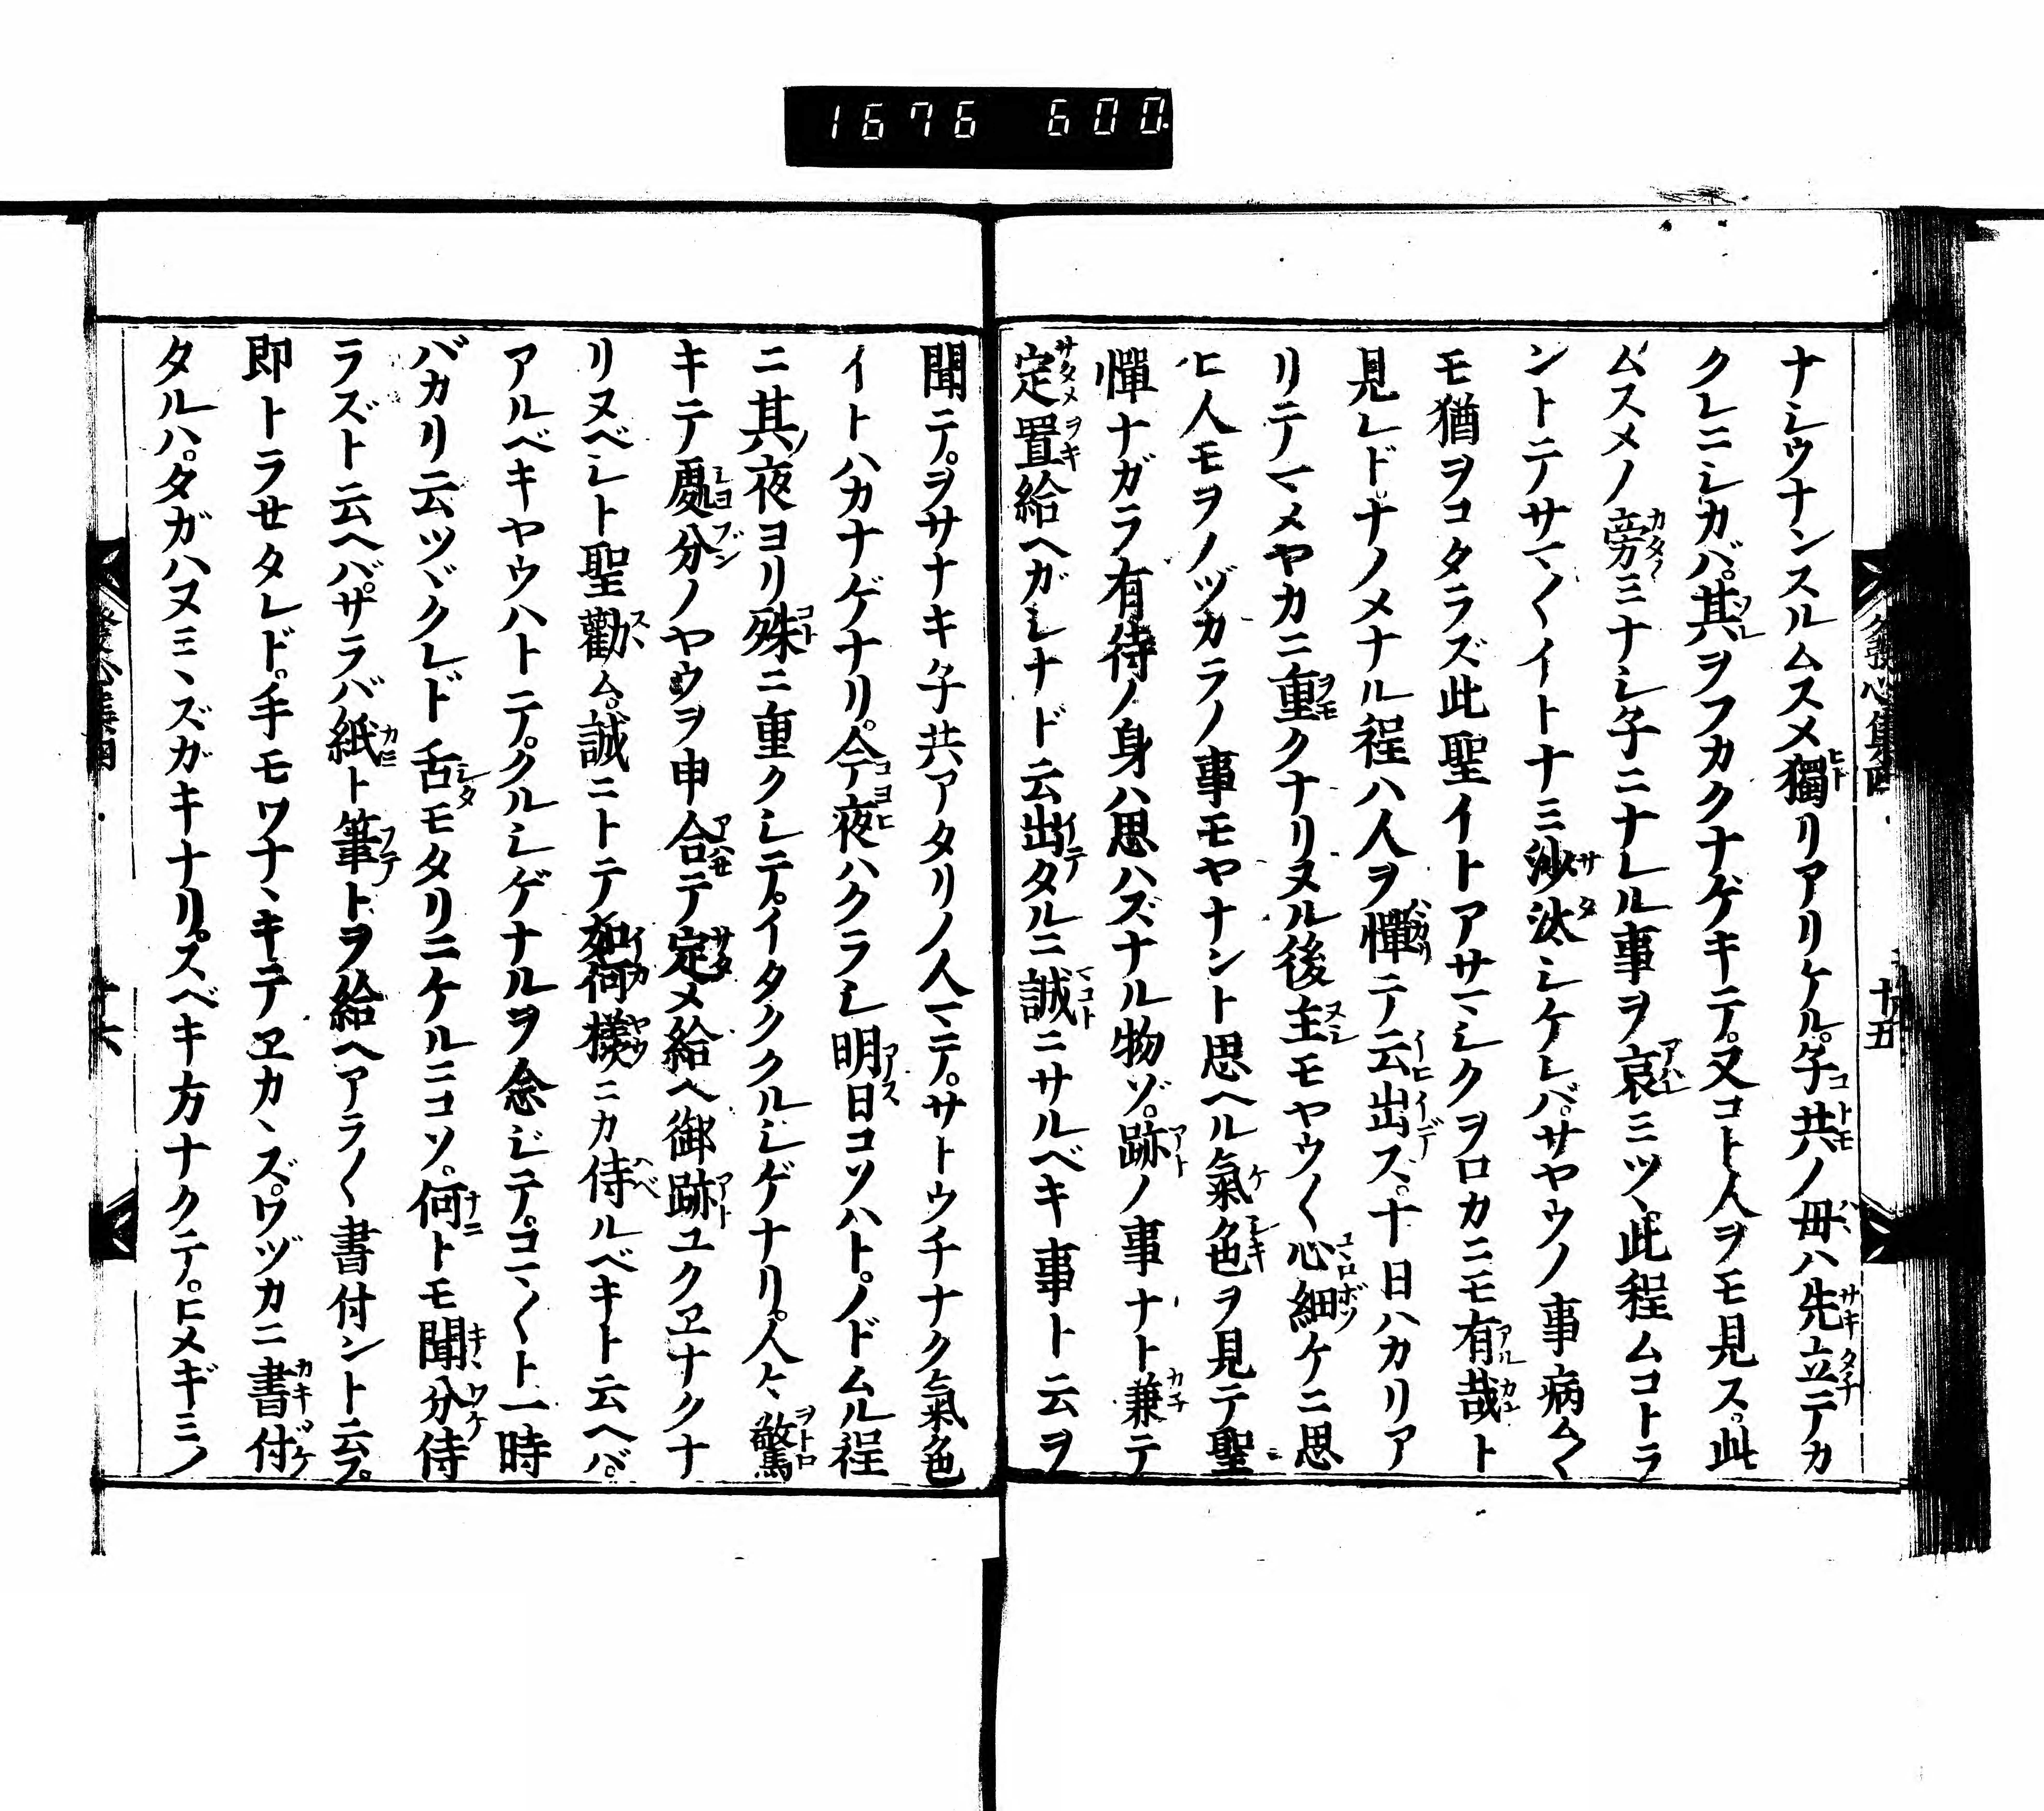 1676 600.
發心集四 十五
ナシウナンスルムスメ獨リアリケル。子共ノ母ハ先立テカ
クレニシカバ。其ヲフカクナゲキテ。又コト人ヲモ見ス。此
ムスメノ旁ミナシ子ニナレル事ヲ哀ミツヽ。此程ムコトラ
ントテサマ〳〵イトナミ沙汰シケレバ。サヤウノ事病ム〳〵
モ猶ヲコタラズ此聖イトアサマシクヲロカニモ有哉ト
見レドナノメナル程ハ人ヲ憚テ云出ス。十日ハカリア
リテマメヤカニ重クナリヌル後主モヤウ〳〵心細ケニ思
ヒ人モヲノヅカラノ事モヤナント思ヘル氣色ヲ見テ聖
憚ナガラ有待ノ身ハ思ハズナル物ゾ。跡ノ事ナト兼テ
定置給ヘガシナド云出タルニ誠ニサルベキ事ト云ヲ
聞テ。ヲサナキ子共アタリノ人マテ。サトウチナク氣色
イトハカナゲナリ。今夜ハクラシ明日コソハト。ノドムル程
ニ其ノ夜ヨリ殊ニ重クシテ。イタククルシゲナリ。人々驚
キテ處分ノヤウヲ申合テ定メ給ヘ御跡ユクヱナクナ
リヌベシト聖勸ム。誠ニトテ如何樣ニカ侍ルベキト云ヘバ。
アルベキヤウハトテ。クルシゲナルヲ念ジテ。コマ〳〵ト一時
バカリ云ツヾクレド舌モタリニケルニコソ。何トモ聞分侍
ラズト云ヘバ。サラバ紙ト筆トヲ給ヘアラ〳〵書付ント云フ。
即トラセタレド。手モワナヽキテヱカヽズ。ワヅカニ書付
タルハ。タガハヌミヽズガキナリ。スベキ方ナクテ。ヒメギミノ